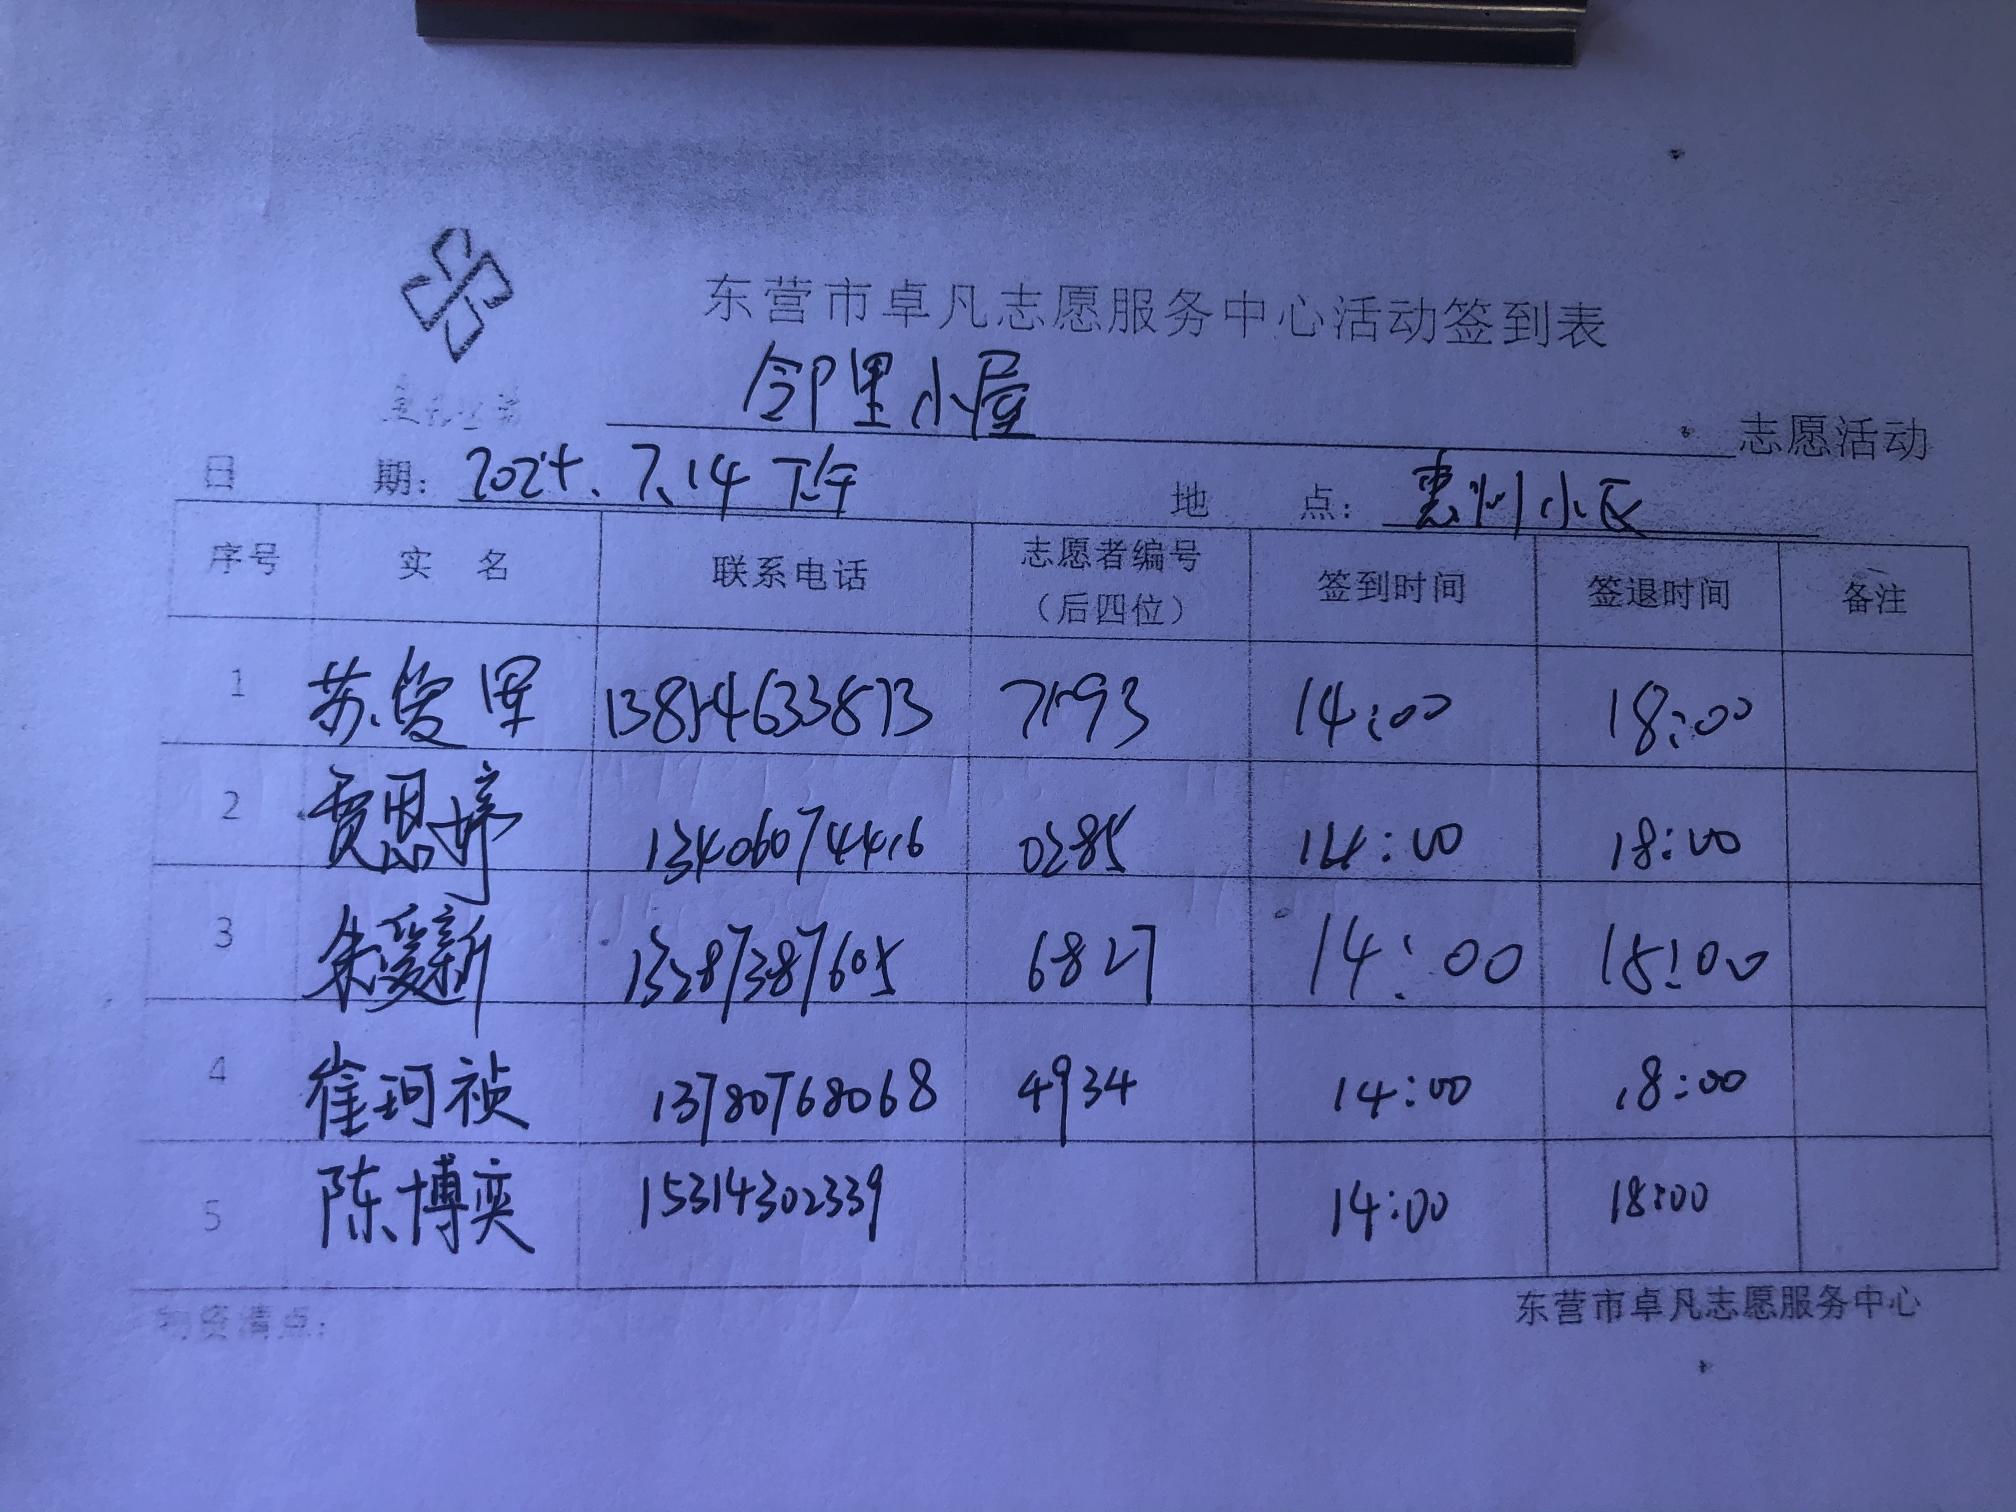 东营市卓凡志愿服务中心活动签到表
邻里小屋 志愿活动
日 期: 2025.7.14 下午 地 点: 惠州小区
序号 实 名 联系电话 志愿者编号（后四位） 签到时间 签退时间 备注
1 苏爱军 13854633873 7593 14:00 18:00
2 贾恩婷 13406074416 0285 14:00 18:00
3 朱爱新 13287387605 6827 14:00 18:00
4 崔珂祯 13780768068 4934 14:00 18:00
5 陈博奕 15314302339 14:00 18:00
物资清点: 东营市卓凡志愿服务中心